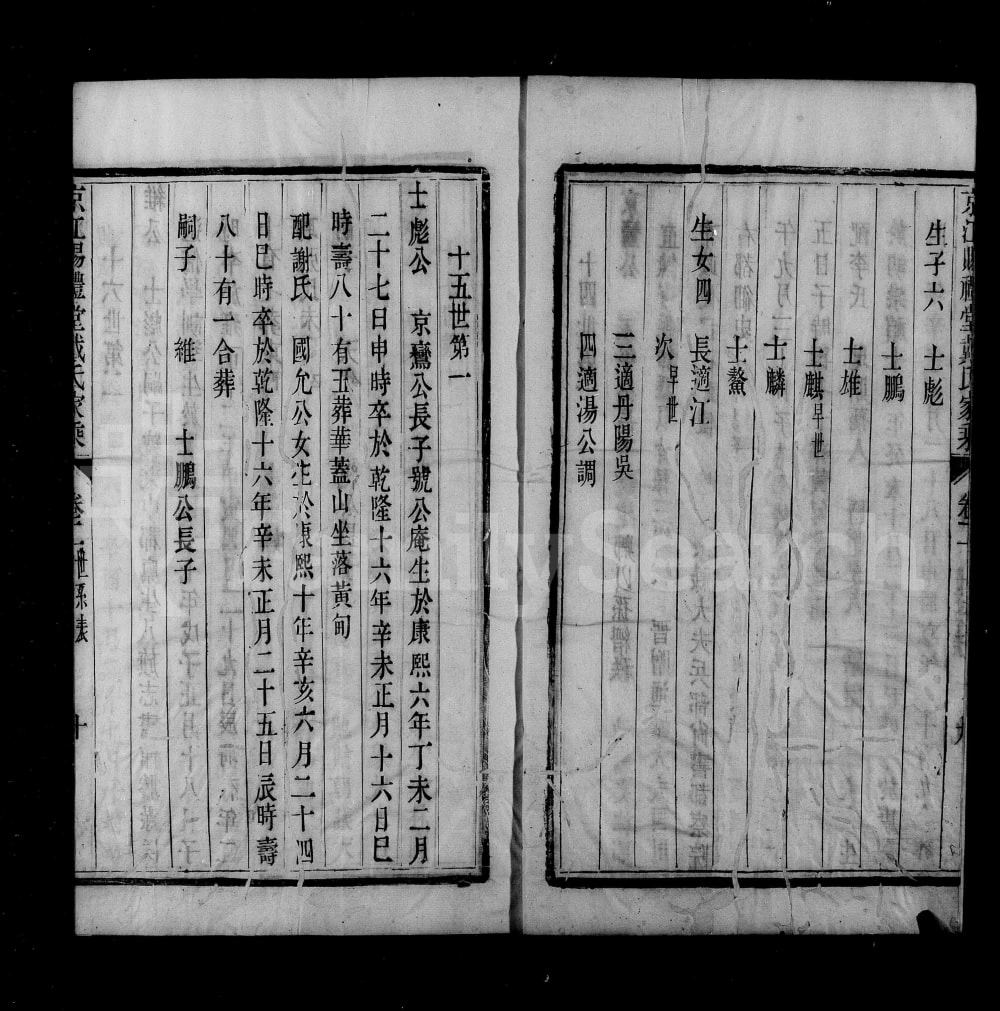 生子六 士彪
士鵬
士雄
士麒早世
士麟
士鰲
生女四 長適江
次早世
三適丹陽吳
四適湯公調
十五世第一
士彪公 京鸞公長子號公庵生於康熙六年丁未二月
二十七日申時卒於乾隆十六年辛未正月十六日巳
時壽八十有五葬華蓋山坐落黃甸
配謝氏 國允公女生於康熙十年辛亥六月二十四
日巳時卒於乾隆十六年辛未正月二十五日辰時壽
八十有一合葬
嗣子 維 士鵬公長子
京江賜禮堂戴氏家乘 卷 世系表 十
FamilySearch